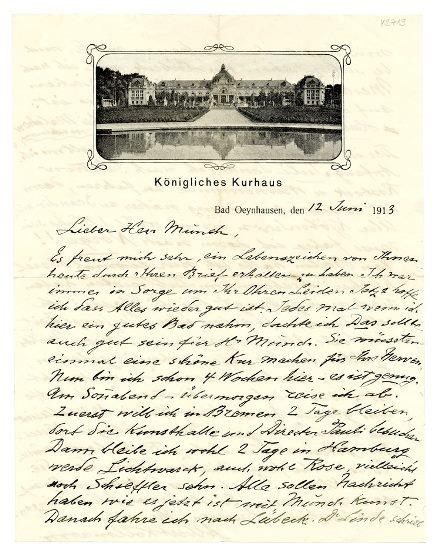 K2713
Königliches Kurhaus
Bad Oeynhausen, den 12 Juni 1913
Lieber Herr Münch,
Es freut mich sehr, ein Lebenszeichen von Ihnen
heute durch Ihren Brief erhalten zu haben. Ich war
immer in Sorge um Ihr Ohren Leiden. Jetzt hoffe
ich dass Alles wieder gut ist. Jedes mal wenn ich
hier ein gutes Bad nahm, dachte ich Das sollte
auch gut sein für Hr Münch. Sie müssten
einmal eine schöne Kur machen für Ihre Nerven.
Nun bin ich schon 4 Wochen hier - es ist genug.
Am Sonabend - übermorgen reise ich ab.
Zuerst will ich in Bremen 2 Tage bleiben,
dort die Kunsthalle und Director Pauli besuchen
Dann bleibe ich wohl 2 Tage in Hamburg
werde Lichtwarck, auch wohl Rose, vielleicht
noch Scheffler sehn. Alle sollen Nachricht
haben wie es jetzt ist mit Münch Kunst.
Danach fahre ich nach Lübeck. Dr Linde schrieb